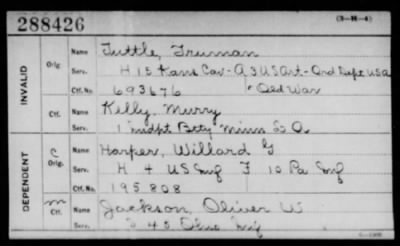 288426
(3-H-4)
INVALID
Orig.
Name Tuttle, Truman
Serv. H 15 Kans Cav - A 3 US Art - Ord Dept USA
Ctf. No. 693676 " Old War
Ctf.
Name Kelly, Murry
Serv. 1 Indpt Btty Minn L A
DEPENDENT
C Orig.
Name Harper, Willard G
Serv. H 4 US Inf F 10 Pa Inf
Ctf. No. 195808
m Ctf.
Name Jackson, Oliver W
Serv. 45 Ohio Inf